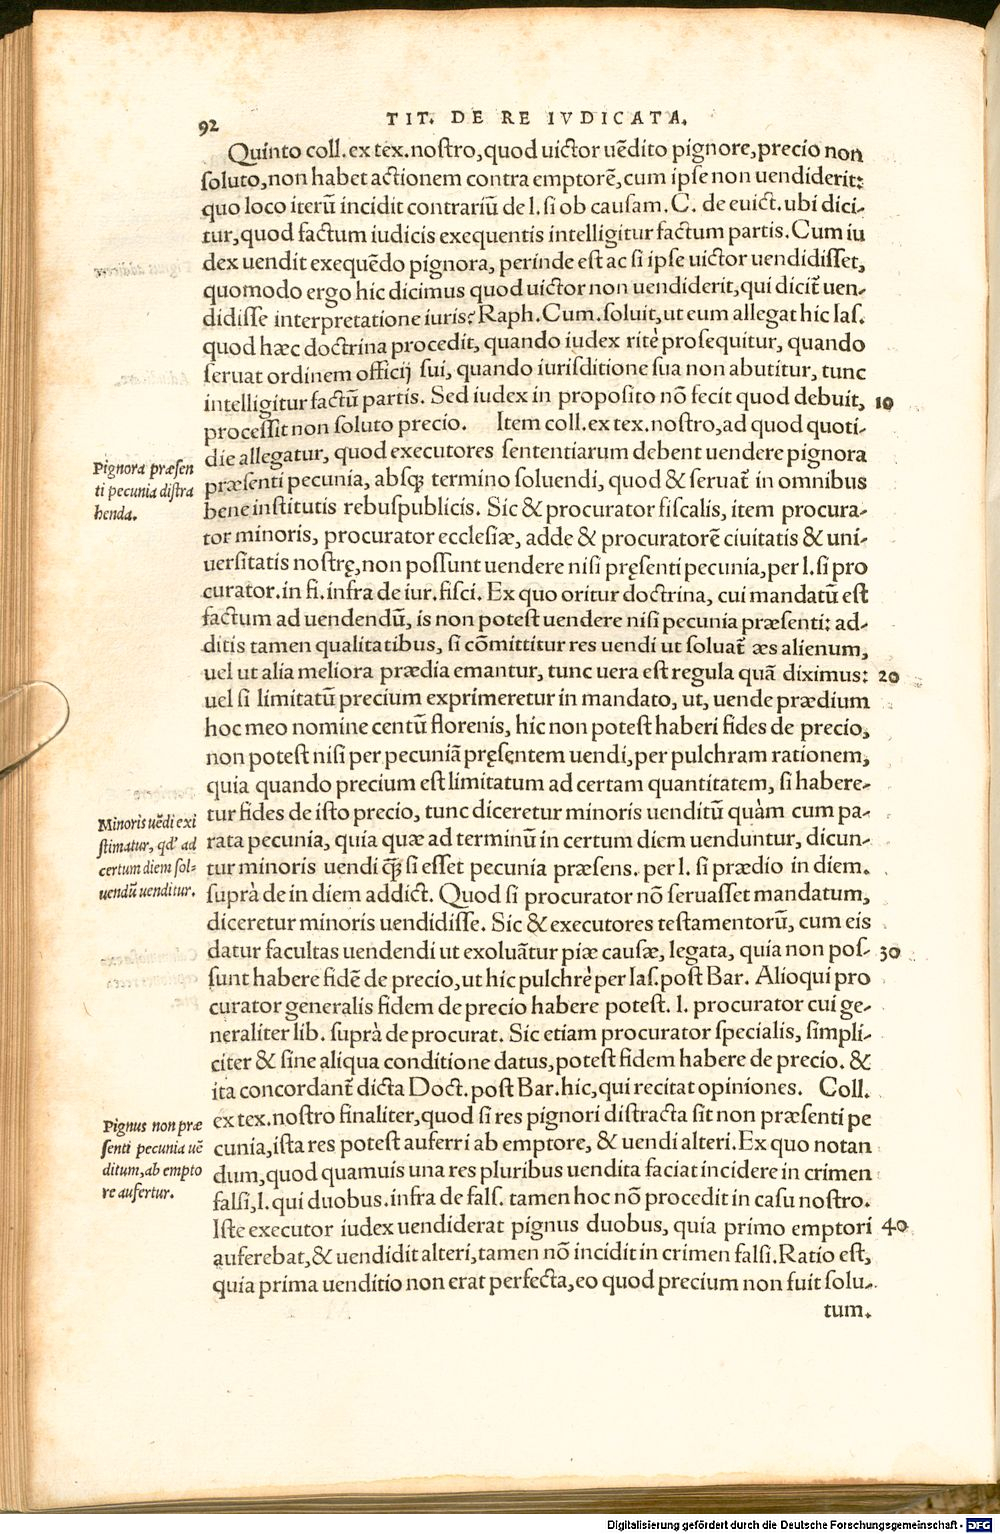 92 TIT. DE RE IVDICATA.
Quinto coll. ex tex. nostro, quod uictor uẽdito pignore, precio non
soluto, non habet actionem contra emptorẽ, cum ipse non uendiderit:
quo loco iterũ incidit contrariũ de l. si ob causam. C. de euict. ubi dici-
tur, quod factum iudicis exequentis intelligitur factum partis. Cum iu
dex uendit exequẽdo pignora, perinde est ac si ipse uictor uendidisset,
quomodo ergo hic dicimus quod uictor non uendiderit, qui dicit̃ uen-
didisse interpretatione iuris? Raph. Cum. soluit, ut eum allegat hic Ias.
quod hæc doctrina procedit, quando iudex ritè prosequitur, quando
seruat ordinem officij sui, quando iurisditione sua non abutitur, tunc
intelligitur factũ partis. Sed iudex in proposito nõ fecit quod debuit, 10
processit non soluto precio. Item coll. ex tex. nostro, ad quod quoti-
die allegatur, quod executores sententiarum debent uendere pignora
Pignora præsen
ti pecunia distra
henda.
præsenti pecunia, absq̃ termino soluendi, quod & seruat̃ in omnibus
bene institutis rebuspublicis. Sic & procurator fiscalis, item procura-
tor minoris, procurator ecclesiæ, adde & procuratorẽ ciuitatis & uni-
uersitatis nostrę, non possunt uendere nisi pręsenti pecunia, per l. si pro
curator. in fi. infra de iur. fisci. Ex quo oritur doctrina, cui mandatũ est
factum ad uendendũ, is non potest uendere nisi pecunia præsenti: ad-
ditis tamen qualitatibus, si cõmittitur res uendi ut soluat̃ æs alienum,
uel ut alia meliora prædia emantur, tunc uera est regula quã diximus: 20
uel si limitatũ precium exprimeretur in mandato, ut, uende prædium
hoc meo nomine centũ florenis, hic non potest haberi fides de precio,
non potest nisi per pecuniã pręsentem uendi, per pulchram rationem,
quia quando precium est limitatum ad certam quantitatem, si habere-
tur fides de isto precio, tunc diceretur minoris uenditũ quàm cum pa-
Minoris uẽdi exi
stimatur, qd' ad
certum diem sol-
uendũ uenditur.
rata pecunia, quia quæ ad terminũ in certum diem uenduntur, dicun-
tur minoris uendi q̃ si esset pecunia præsens. per l. si prædio in diem.
suprà de in diem addict. Quod si procurator nõ seruasset mandatum,
diceretur minoris uendidisse. Sic & executores testamentorũ, cum eis
datur facultas uendendi ut exoluãtur piæ causæ, legata, quia non pos- 30
sunt habere fidẽ de precio, ut hic pulchrè per Ias. post Bar. Alioqui pro
curator generalis fidem de precio habere potest. l. procurator cui ge-
neraliter lib. suprà de procurat. Sic etiam procurator specialis, simpli-
citer & sine aliqua conditione datus, potest fidem habere de precio. &
ita concordant̃ dicta Doct. post Bar. hic, qui recitat opiniones. Coll.
ex tex. nostro finaliter, quod si res pignori distracta sit non præsenti pe
Pignus non præ
senti pecunia uẽ
ditum, ab empto
re aufertur.
cunia, ista res potest auferri ab emptore, & uendi alteri. Ex quo notan
dum, quod quamuis una res pluribus uendita faciat incidere in crimen
falsi, l. qui duobus. infra de fals. tamen hoc nõ procedit in casu nostro.
Iste executor iudex uendiderat pignus duobus, quia primo emptori 40
auferebat, & uendidit alteri, tamen nõ incidit in crimen falsi. Ratio est,
quia prima uenditio non erat perfecta, eo quod precium non fuit solu-
tum.
Digitalisierung gefördert durch die Deutsche Forschungsgemeinschaft - DFG